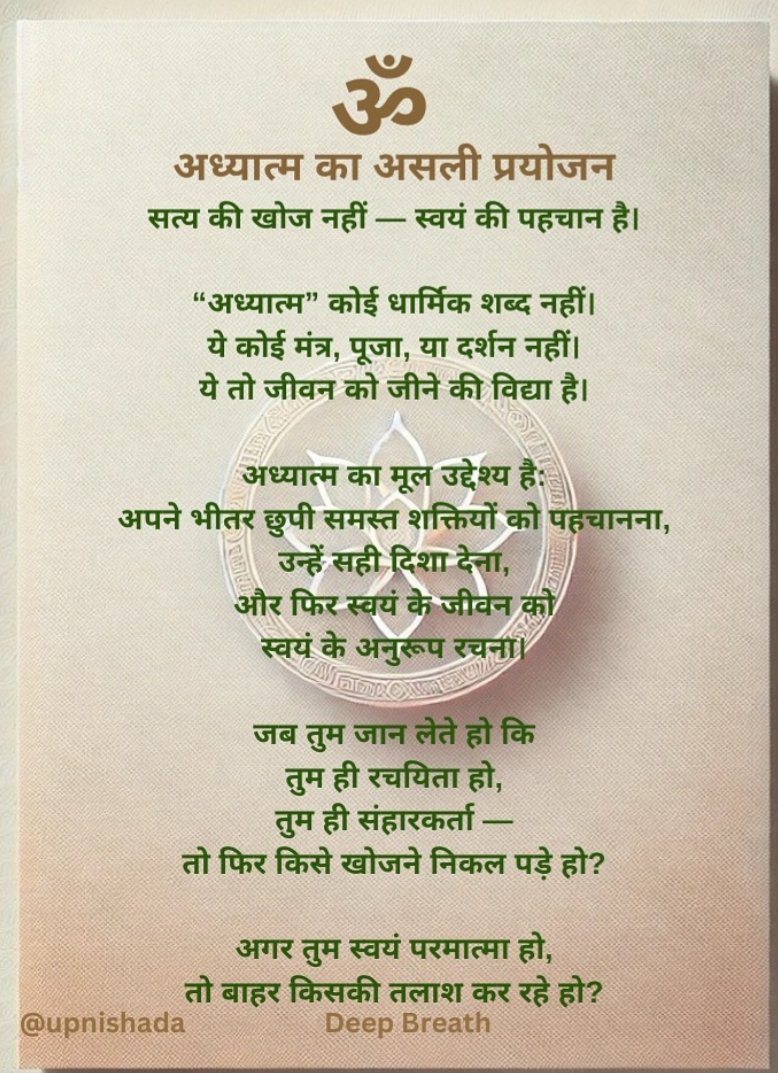 ॐ
अध्यात्म का असली प्रयोजन
सत्य की खोज नहीं — स्वयं की पहचान है।
“अध्यात्म” कोई धार्मिक शब्द नहीं।
ये कोई मंत्र, पूजा, या दर्शन नहीं।
ये तो जीवन को जीने की विद्या है।
अध्यात्म का मूल उद्देश्य है:
अपने भीतर छुपी समस्त शक्तियों को पहचानना,
उन्हें सही दिशा देना,
और फिर स्वयं के जीवन को
स्वयं के अनुरूप रचना।
जब तुम जान लेते हो कि
तुम ही रचयिता हो,
तुम ही संहारकर्ता —
तो फिर किसे खोजने निकल पड़े हो?
अगर तुम स्वयं परमात्मा हो,
तो बाहर किसकी तलाश कर रहे हो?
@upnishada Deep Breath